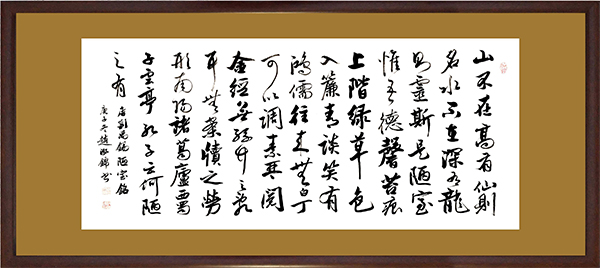 山不在高有仙則
名水不在深有龍
則靈斯是陋室
惟吾德馨苔痕
上階綠草色
入簾青談笑有
鴻儒往來無白丁
可以調素琴閱
金經無絲竹之亂
耳無案牘之勞
形南陽諸葛廬西蜀
子雲亭孔子云何陋
之有
唐劉禹錫陋室銘
庚子冬趙錦書